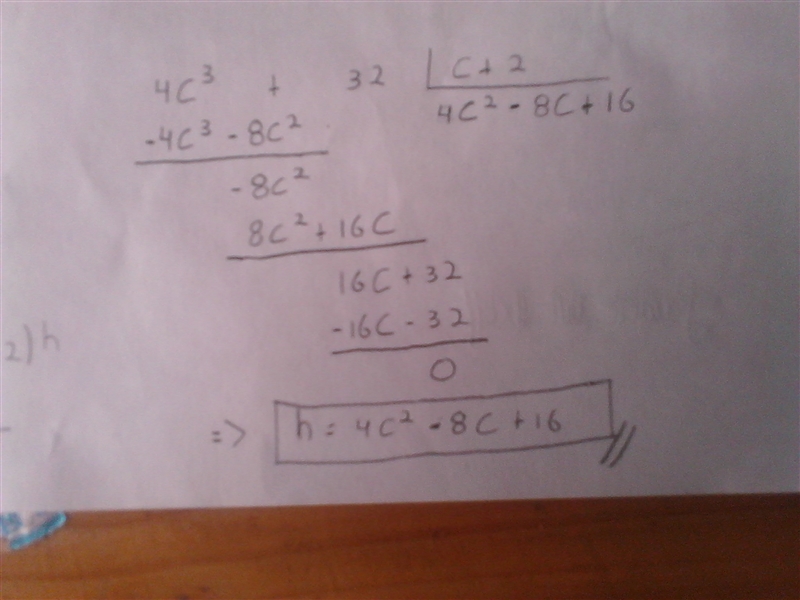 4c³ + 32 | c + 2
-4c³ - 8c² 4c² - 8c + 16
-8c²
8c² + 16c
16c + 32
-16c - 32
2)h
0
=> h = 4c² - 8c + 16 //